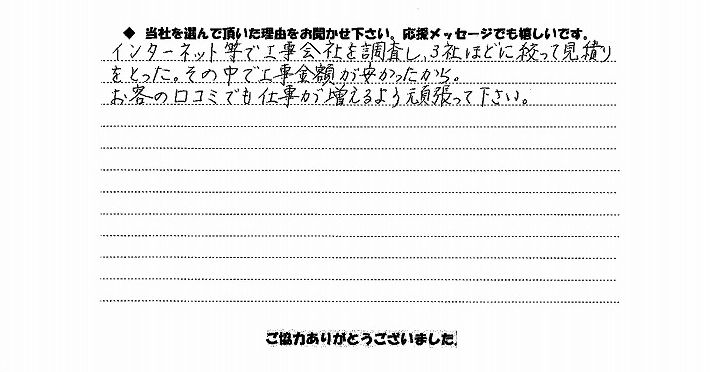 ◆ 当社を選んで頂いた理由をお聞かせ下さい。応援メッセージでも嬉しいです。
インターネット等で工事会社を調査し、3社ほどに絞って見積り
をとった。その中で工事金額が安かったから。
お客の口コミでも仕事が増えるよう頑張って下さい。
ご協力ありがとうございました。